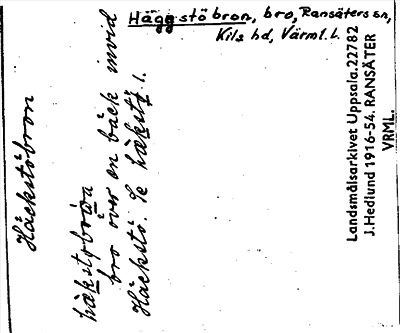 Häggstöbron, bro, Ransäters sn,
Kils hd, Värml. l.
Häckstöbron
hàkstybròna
bro över en bäck invid
Häckstö. Se hàkstý 1.
Landsmålsarkivet Uppsala. 22782
J. Hedlund 1916-54. RANSÄTER
VRML.